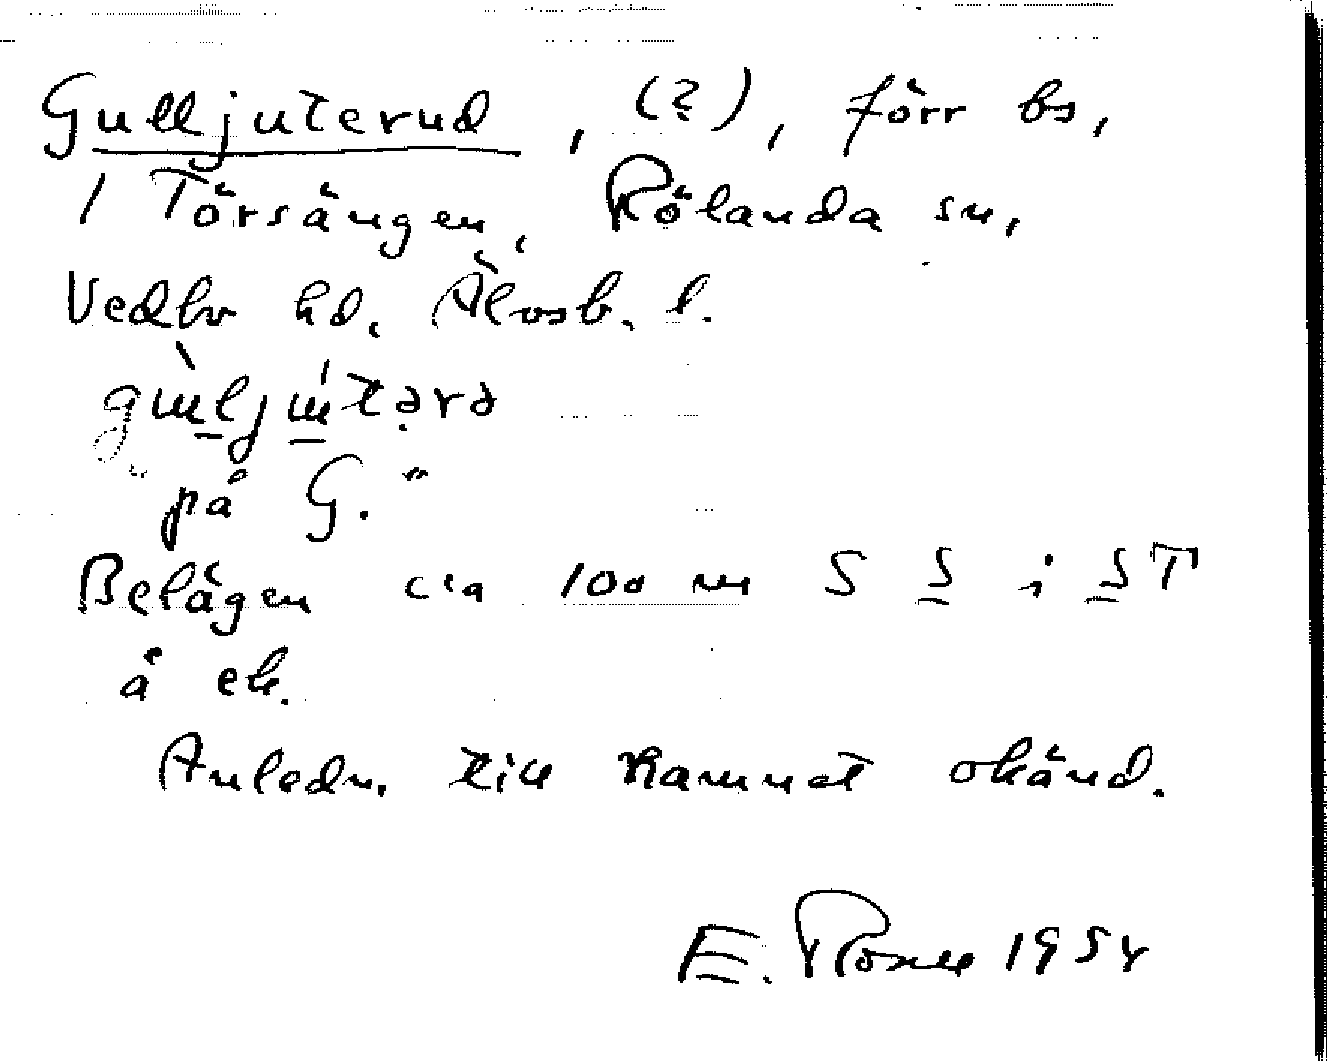 Gulljuterud, (?), förr bs,
1 Törsängen, Rölanda sn,
Vedbo hd. Älvsb. l.
"på G."
Belägen c:a 100 m S S i ST
å ek.
Anledn. till namnet okänd.
E. 1954